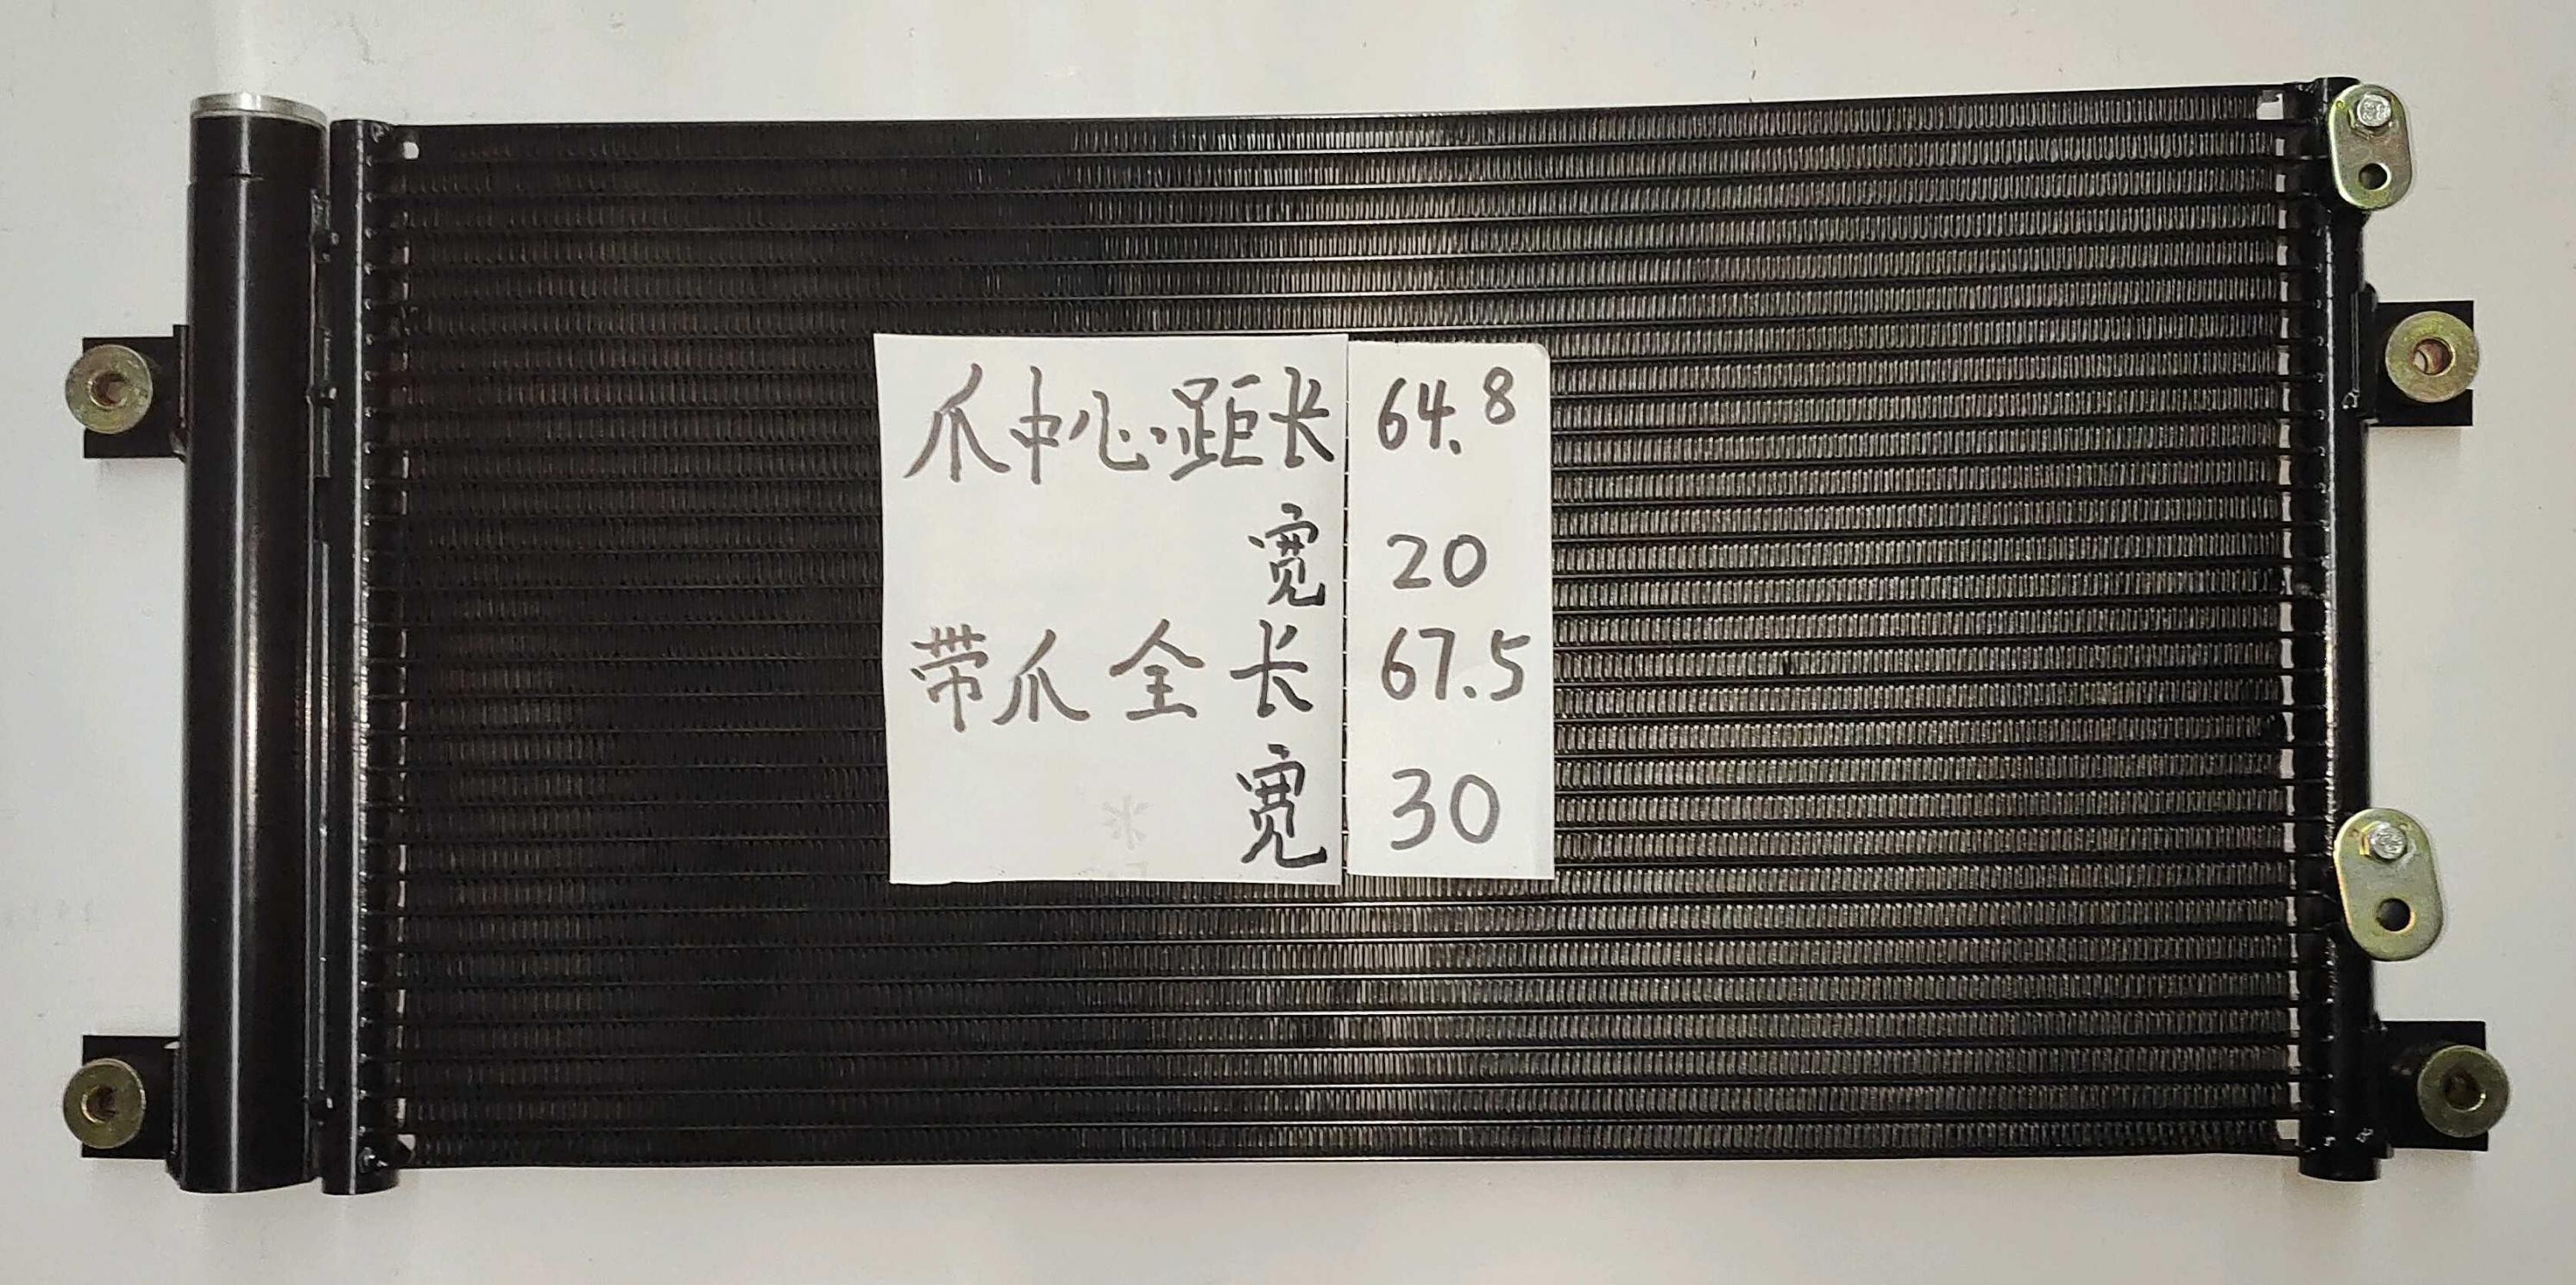 爪中心距长 64.8
宽 20
带爪全长 67.5
宽 30